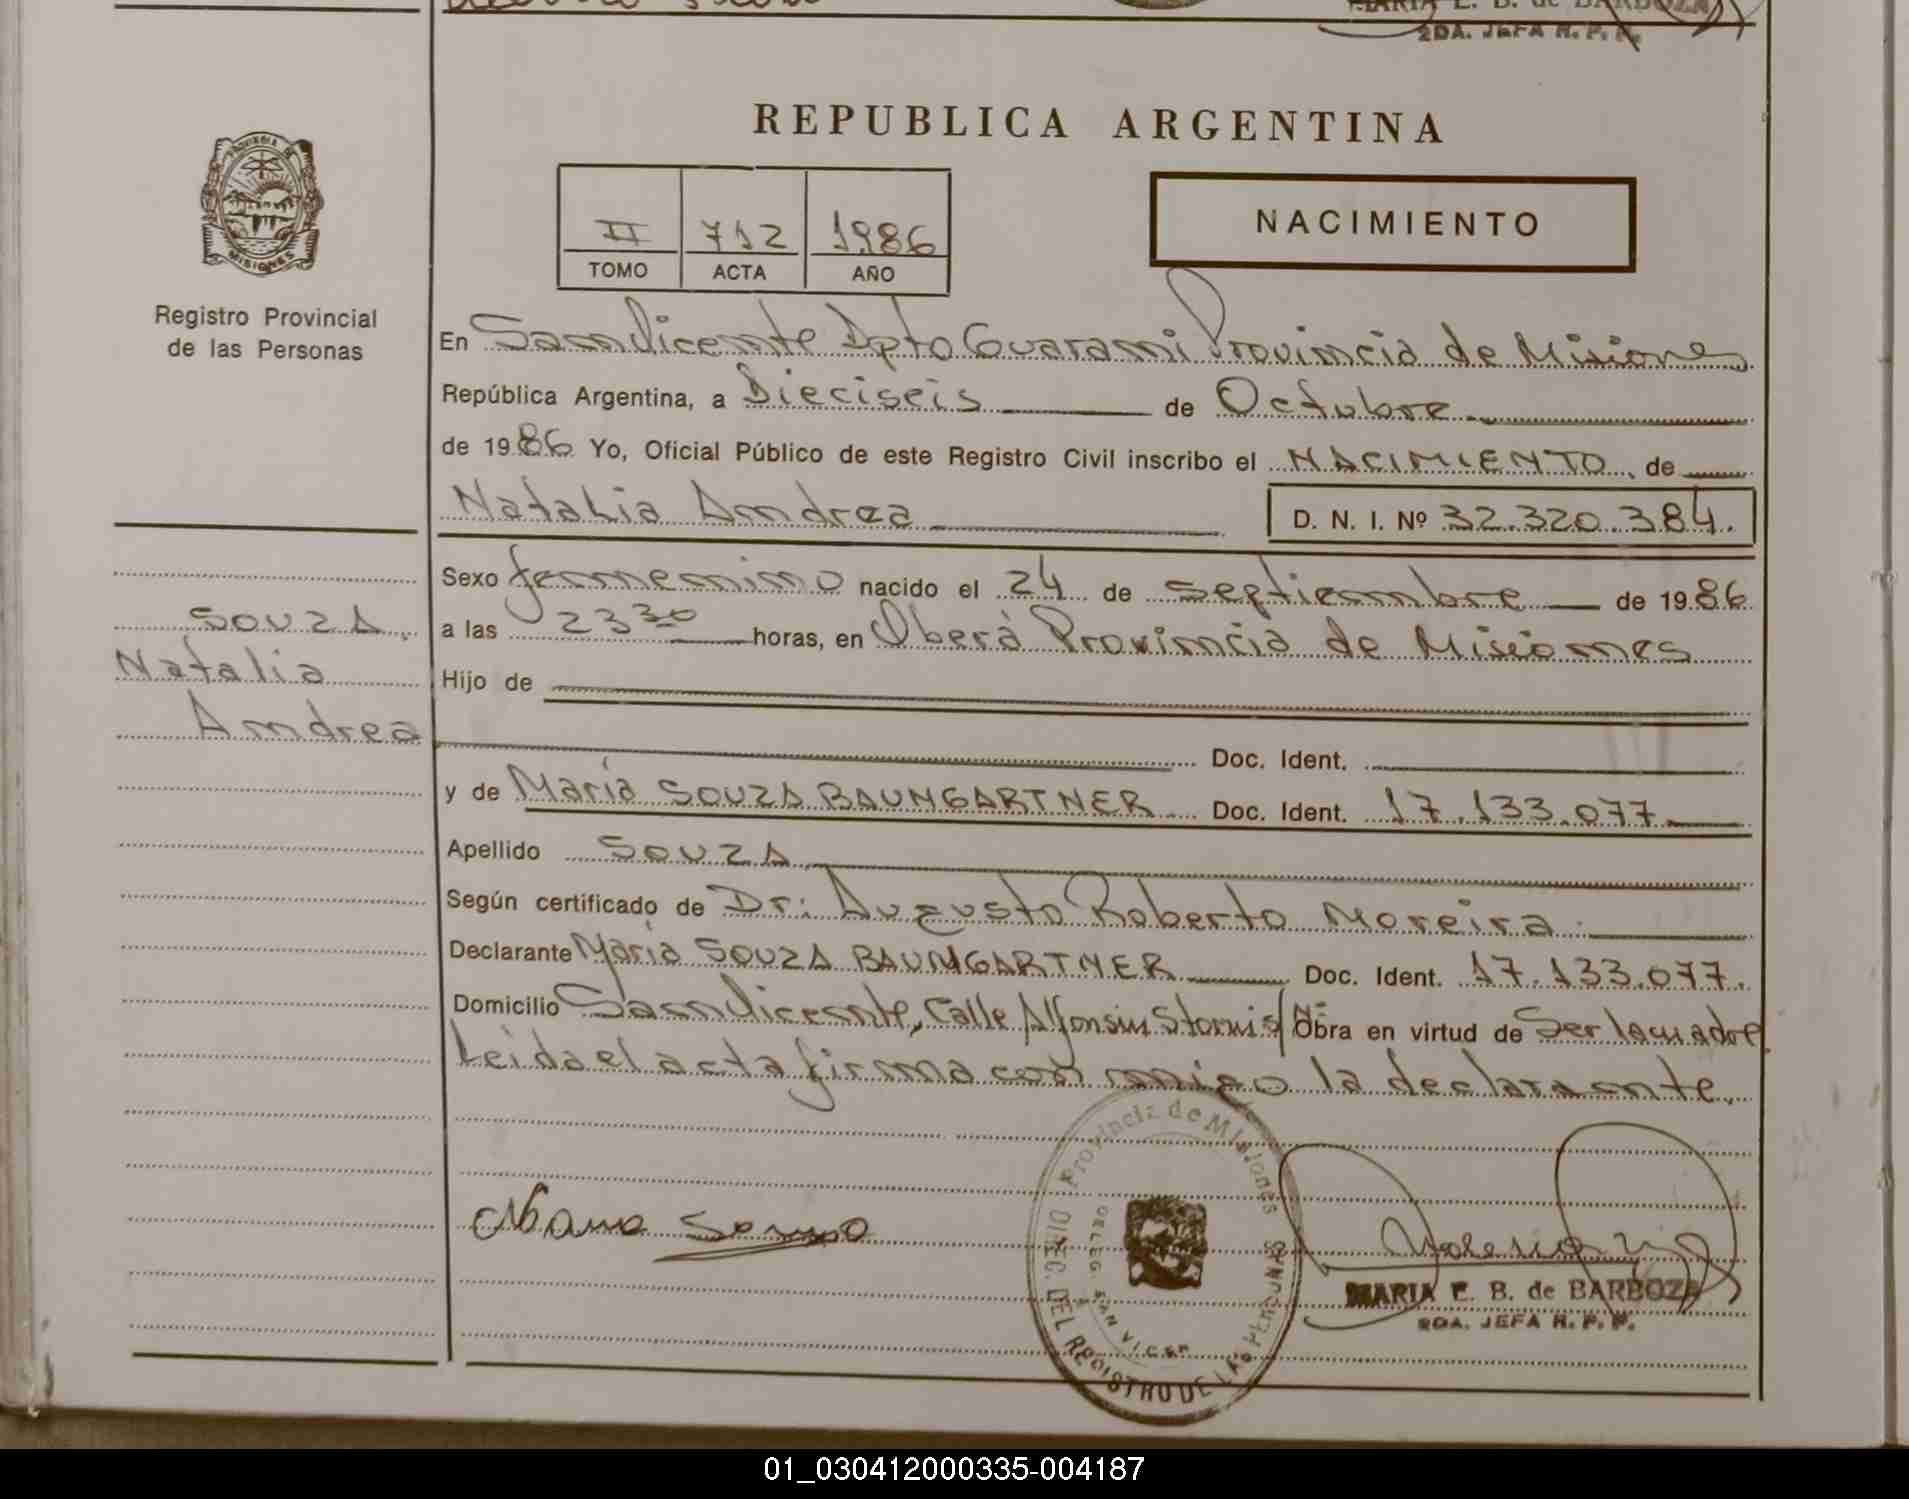 MARIA E. B. de BARBOZA
2DA. JEFA R. P. P.
REPUBLICA ARGENTINA
PROVINCIA DE
MISIONES
Registro Provincial
de las Personas
II 712 1986
TOMO ACTA AÑO
NACIMIENTO
En San Vicente Dpto Guarani Provincia de Misiones
República Argentina, a Dieciseis de Octubre
de 1986 Yo, Oficial Público de este Registro Civil inscribo el NACIMIENTO de
Natalia Andrea D. N. I. Nº 32.320.384.
Sexo femenino nacido el 24 de septiembre de 1986
a las 23 30 horas, en Oberá Provincia de Misiones
Hijo de
Doc. Ident.
y de María SOUZA BAUMGARTNER Doc. Ident. 17.133.077
Apellido SOUZA
Según certificado de Dr: Augusto Roberto Moreira
Declarante María SOUZA BAUMGARTNER Doc. Ident. 17.133.077.
Domicilio San Vicente, Calle Alfonsin Stornis/Nº Obra en virtud de Ser la madre
Leida el acta firma con migo la declarante.
SOUZA,
Natalia
Andrea
Provincia de Misiones
DIREC. DEL REGISTRO DE LAS PERSONAS
DELEG. SAN VICEN
MARIA E. B. de BARBOZA
2DA. JEFA R. P. P.
01_030412000335-004187